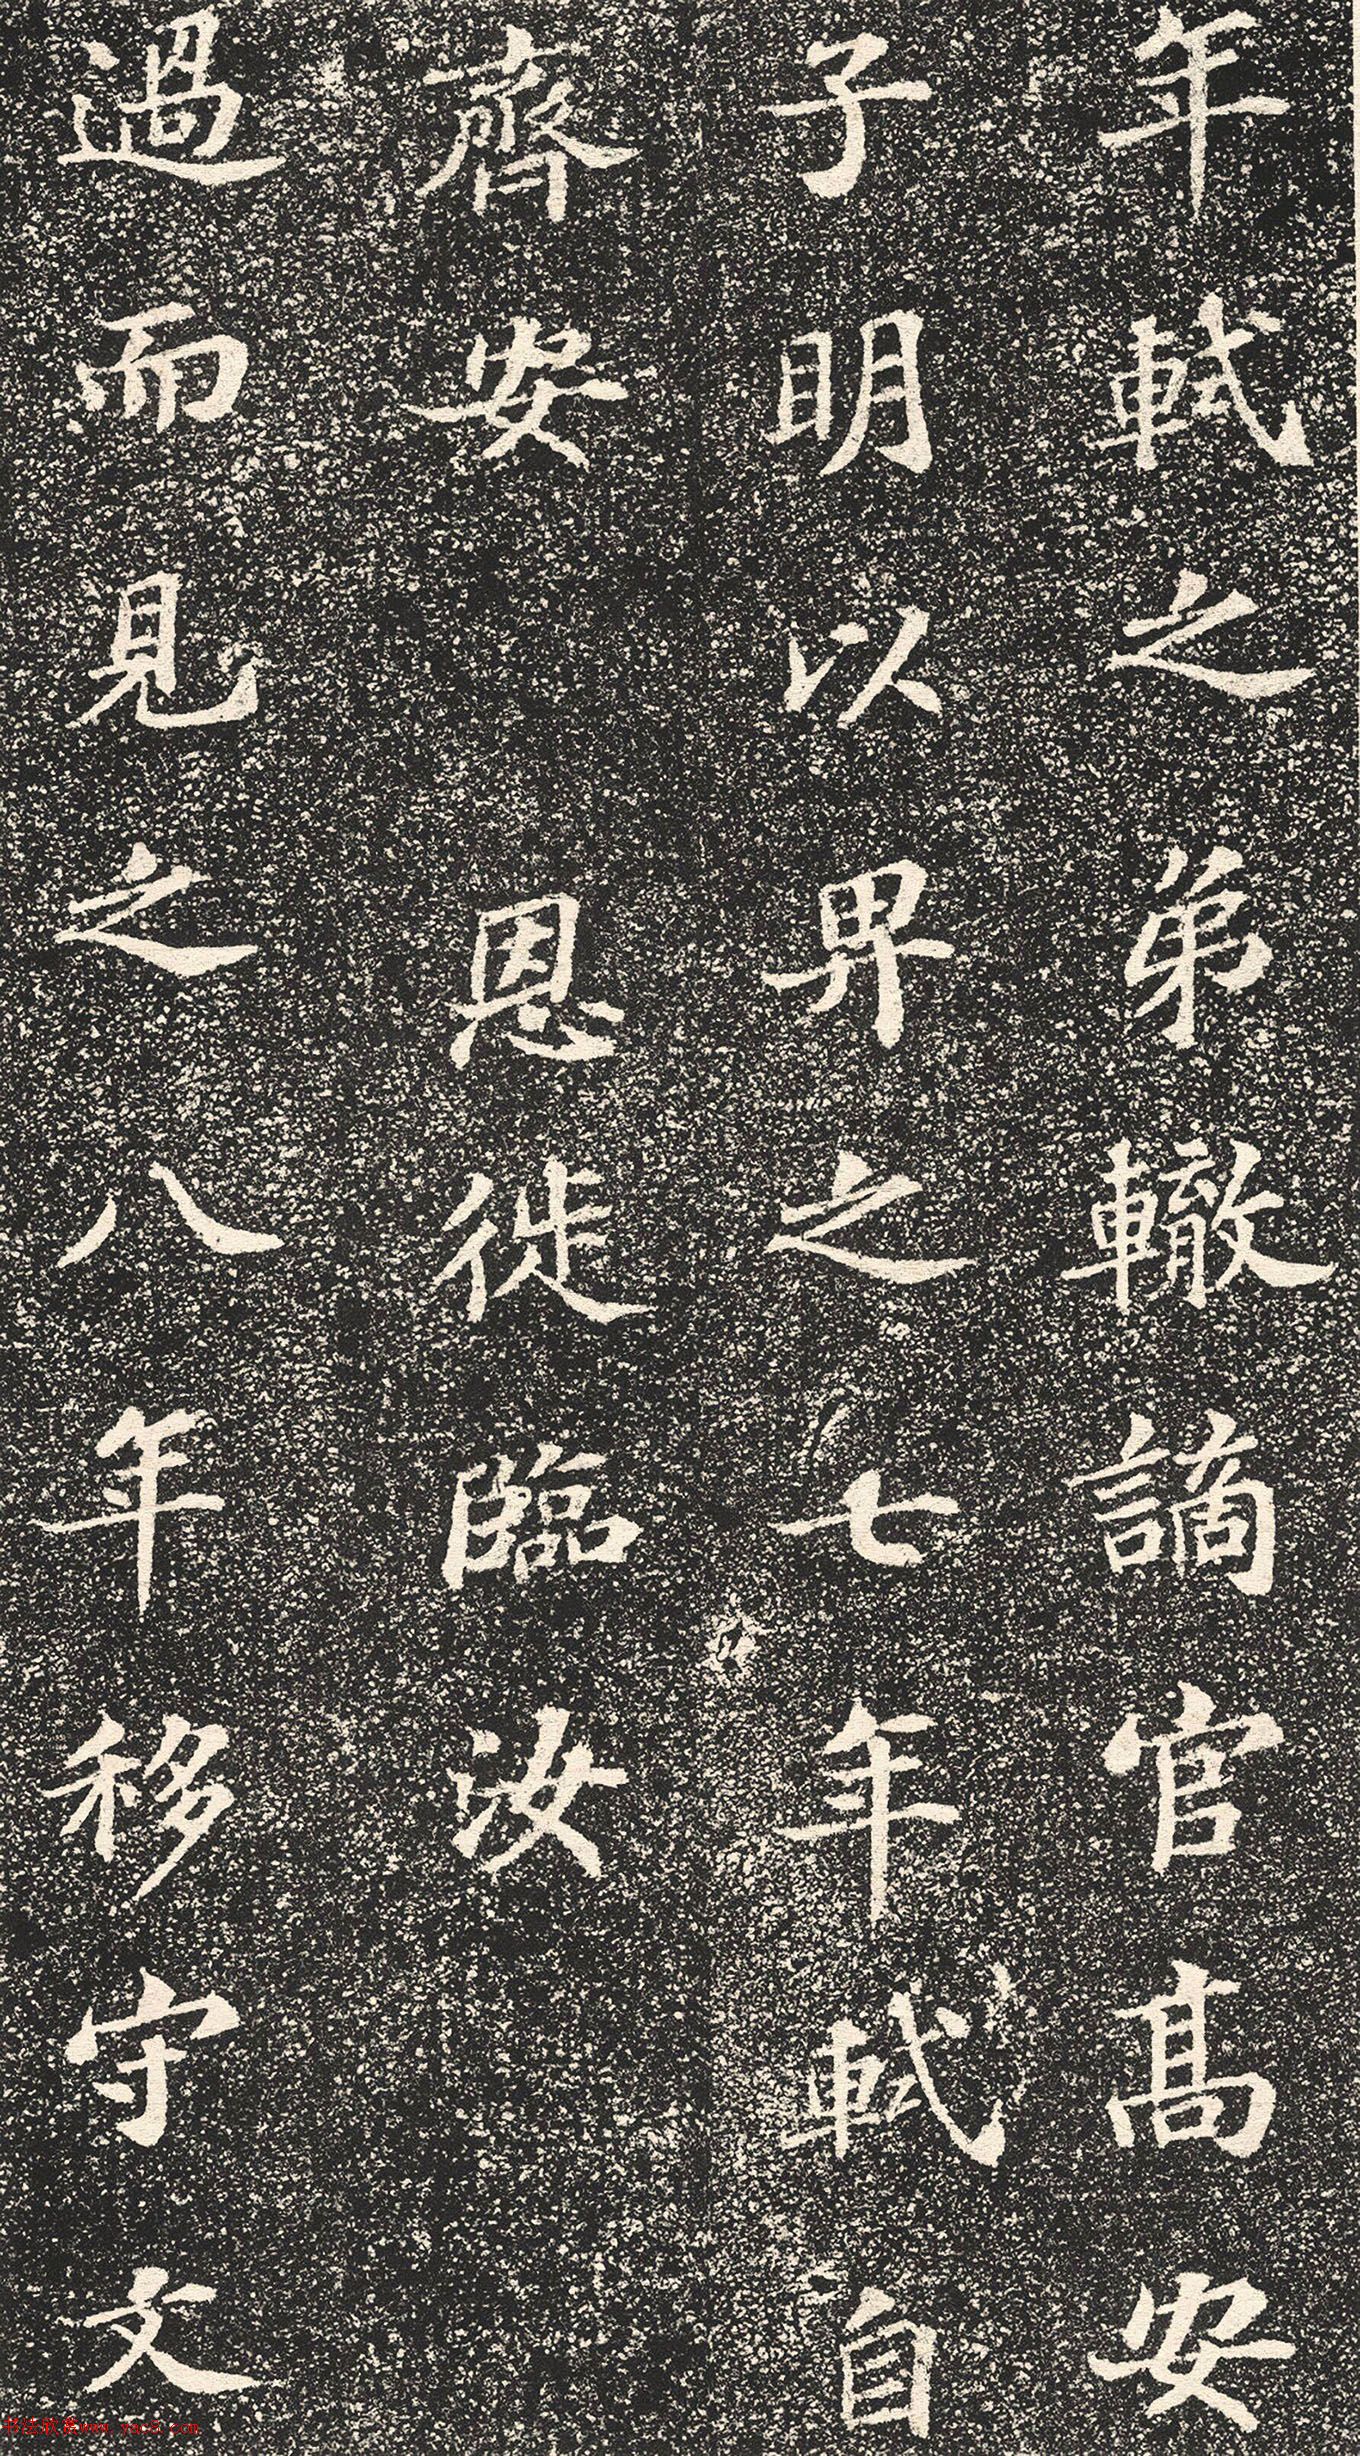 年軾之弟轍謫官高安
子明以畀之七年軾自
齊安 恩徙臨汝
過而見之八年移守文
书法欣赏www.yac8.com